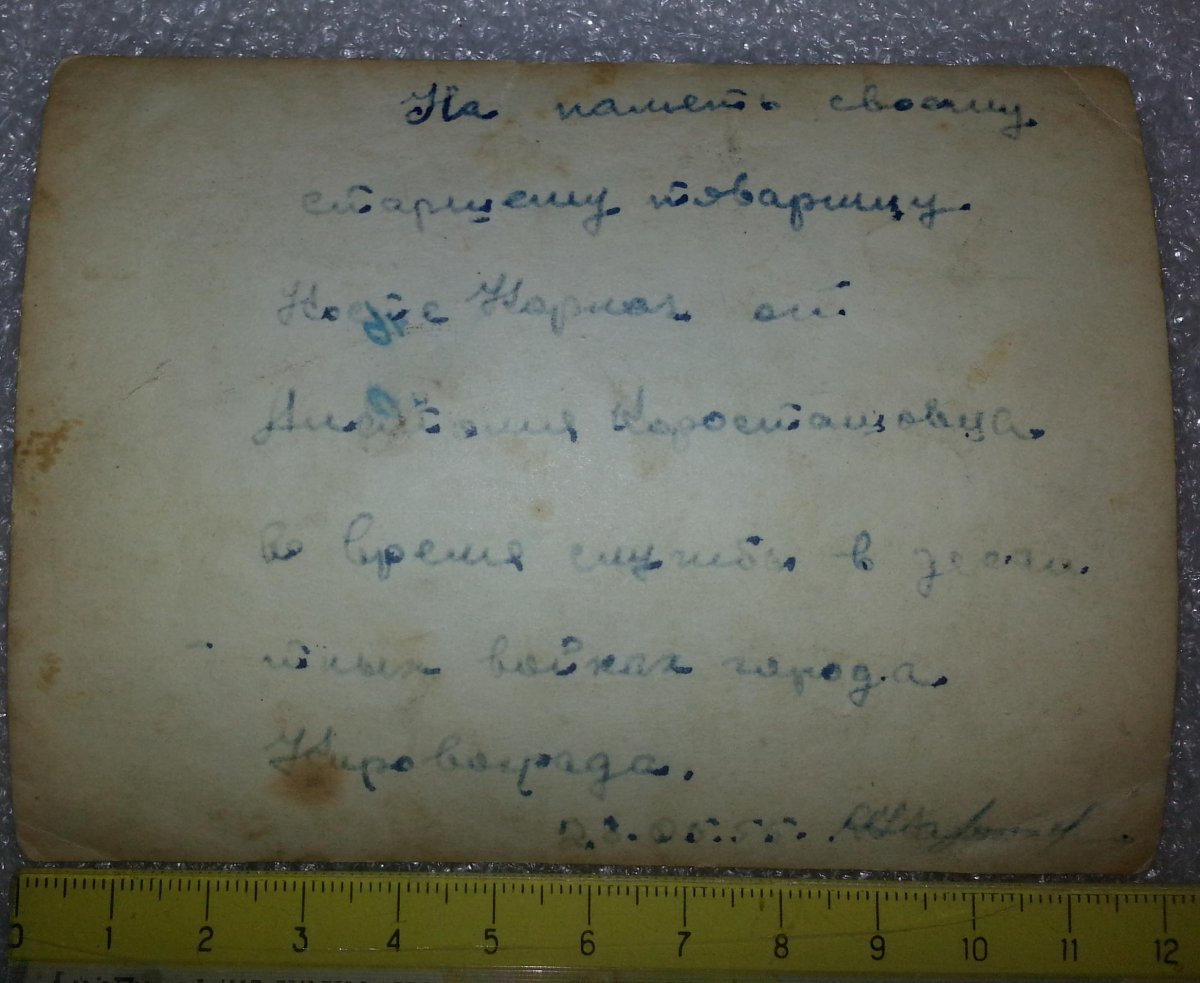 На память своему
старшему товарищу
Косте от
Анатолия Коросташовца
во время службы в десан
тных войсках города
Кировограда.
0 1 2 3 4 5 6 7 8 9 10 11 12